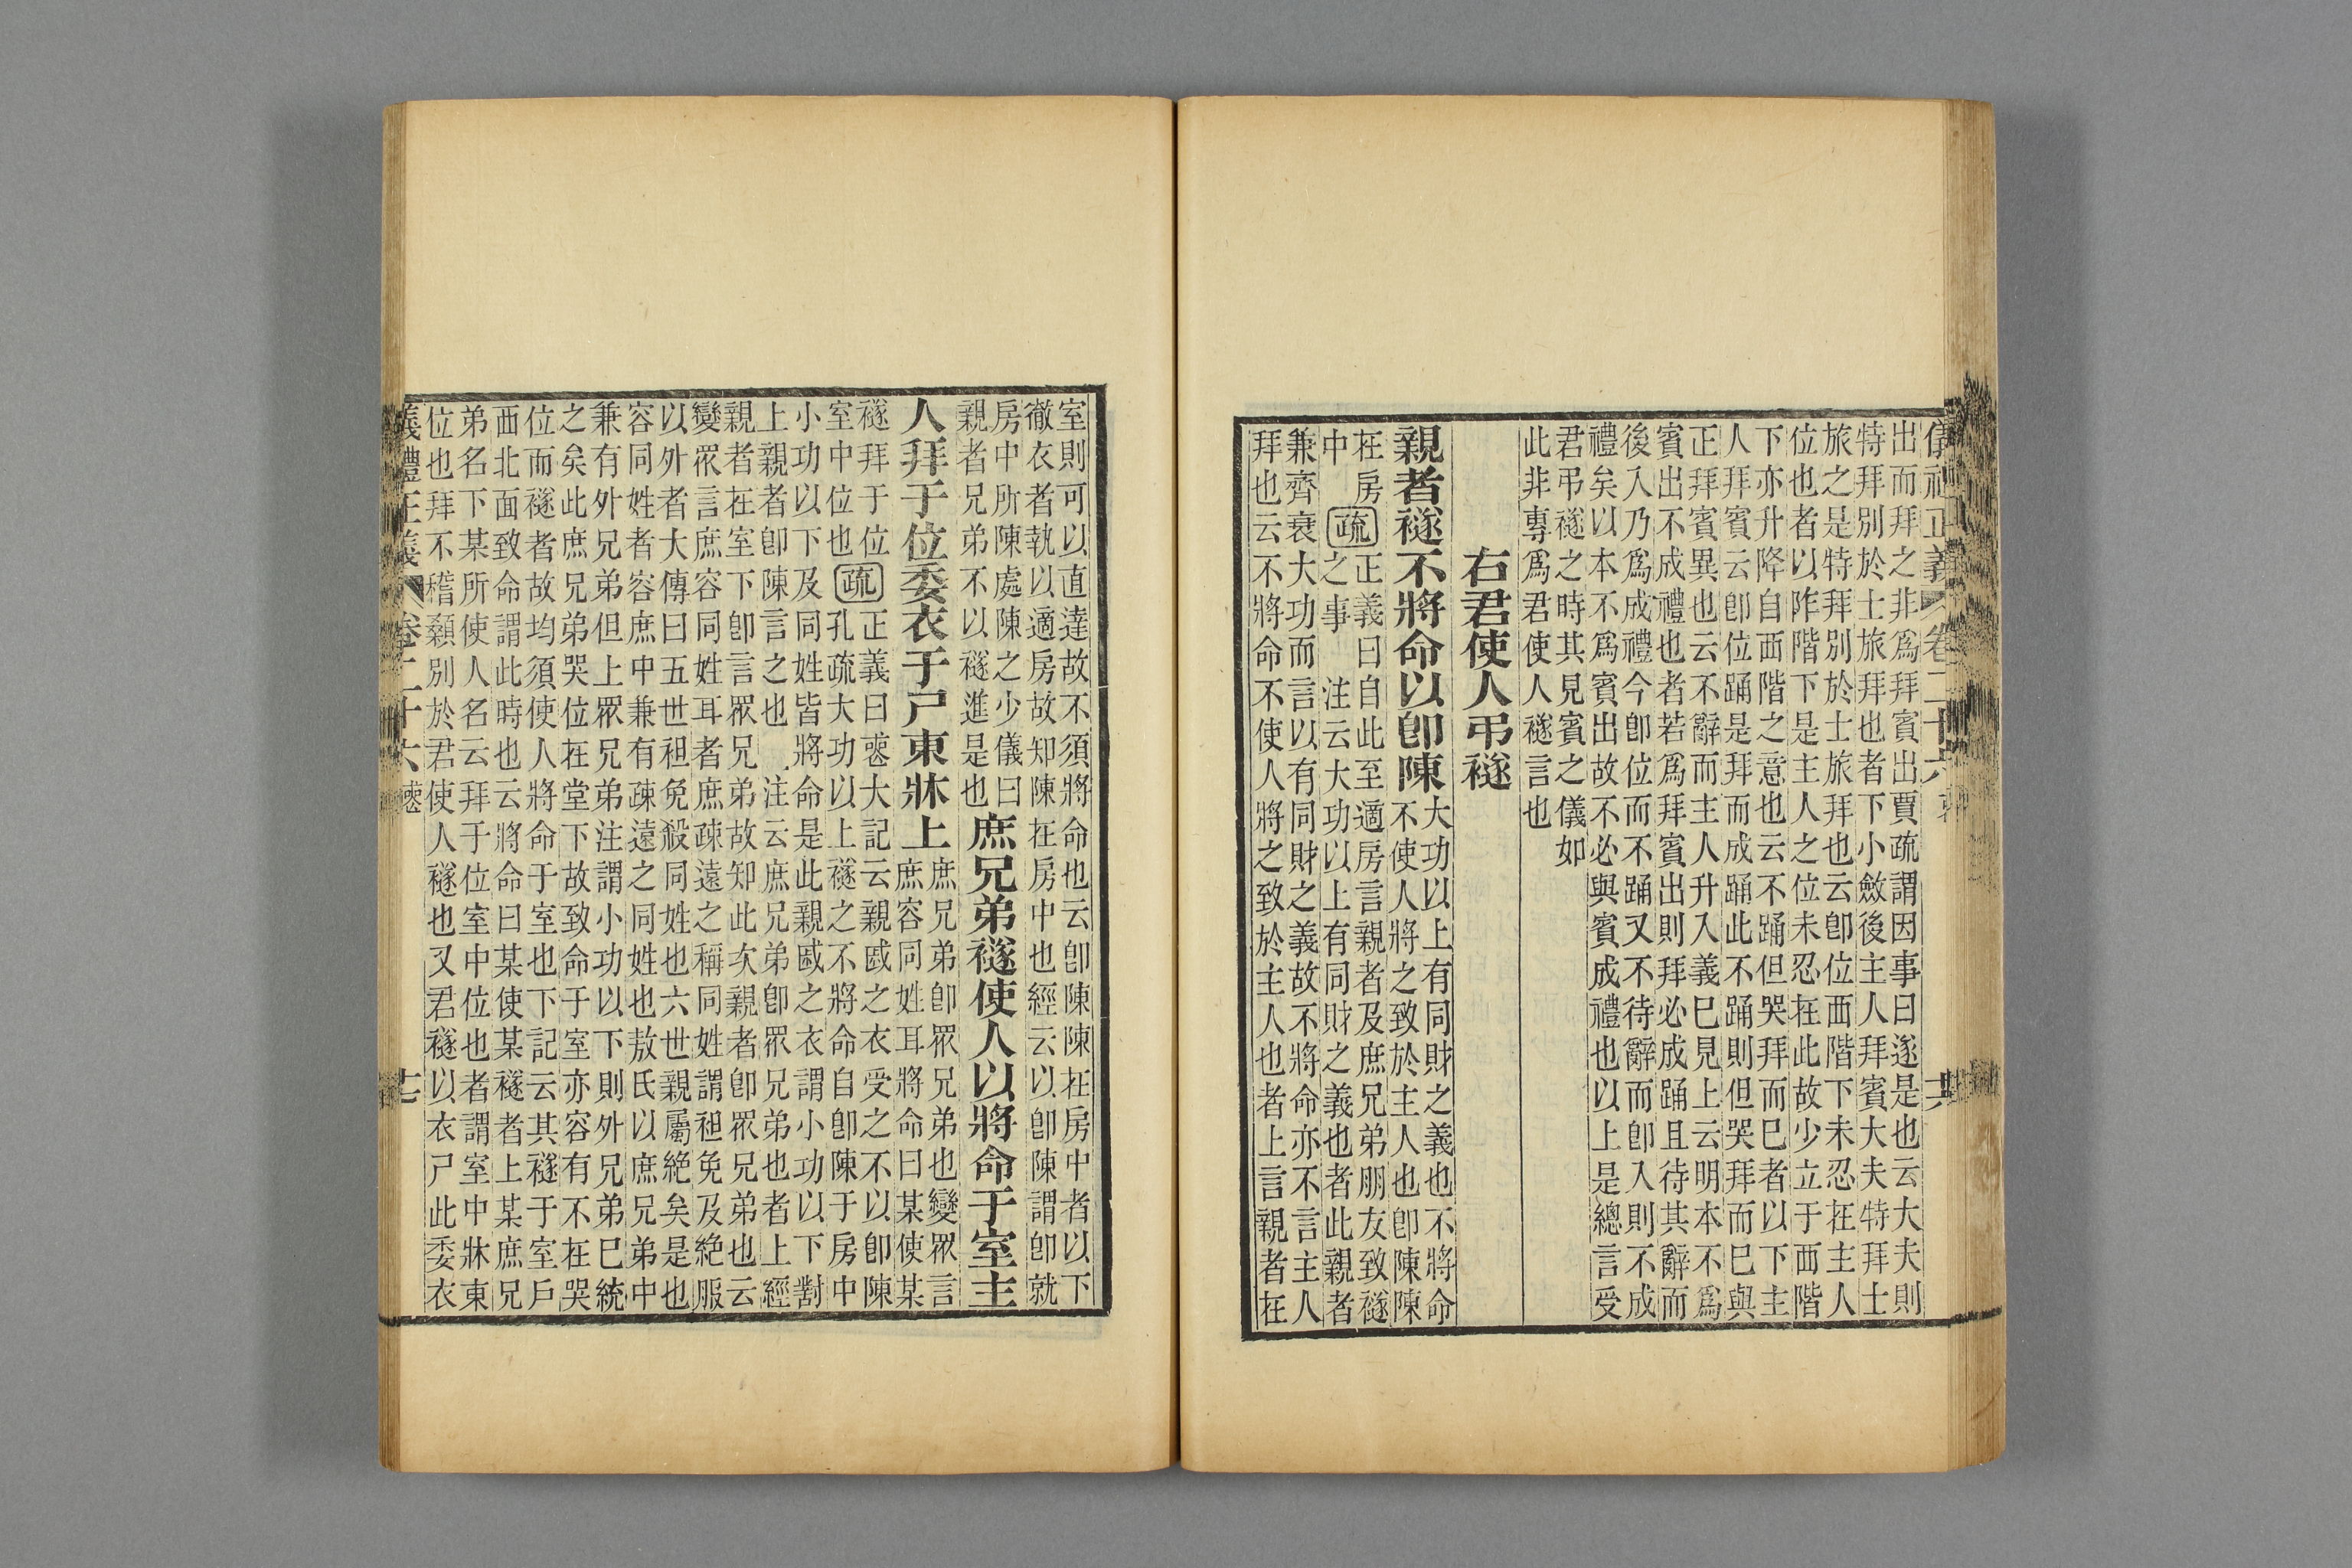 儀禮正義 卷二十六
出而拜之非爲拜賓出賈疏謂因事曰遂是也云大夫則
特拜別於士旅拜也者下小斂後主人拜賓大夫特拜士
旅之是特拜別於士旅拜也云卽位西階下未忍在主人
位也者以阼階下是主人之位未忍在此故少立于西階
下亦升降自西階之意也云不踊但哭拜而已者以下主
人拜賓云卽位踊是拜而成踊此不踊則但哭拜而已與
正拜賓異也云不辭而主人升入義已見上云明本不爲
賓出不成禮也者若爲拜賓出則拜必成踊且待其辭而
後入乃爲成禮今卽位而不踊又不待辭而卽入則不成
禮矣以本不爲賓出故不必與賓成禮也以上是總言受
君弔襚之時其見賓之儀如
此非專爲君使人襚言也
右君使人弔襚
親者襚不將命以卽陳
大功以上有同財之義也不將命
不使人將之致於主人也卽陳陳
在房
中
疏
正義曰自此至適房言親者及庶兄弟朋友致襚
之事 注云大功以上有同財之義也者此親者
兼齊衰大功而言以有同財之義故不將命亦不言主人
拜也云不將命不使人將之致於主人也者上言親者在
室則可以直達故不須將命也云卽陳陳在房中者以下
徹衣者執以適房故知陳在房中也經云以卽陳謂卽就
房中所陳處陳之少儀曰
親者兄弟不以襚進是也
庶兄弟襚使人以將命于室主
人拜于位委衣于尸東牀上
庶兄弟卽眾兄弟也變眾言
庶容同姓耳將命曰某使某
襚拜于位
室中位也
疏
正義曰喪大記云親戚之衣受之不以卽陳
孔疏大功以上襚之不將命自卽陳于房中
小功以下及同姓皆將命是此親戚之衣謂小功以下對
上親者卽陳言之也 注云庶兄弟卽眾兄弟也者上經
親者在室下卽言眾兄弟故知此次親者卽眾兄弟也云
變眾言庶容同姓耳者庶疎遠之稱同姓謂袒免及絕服
以外者大傳曰五世袒免殺同姓也六世親屬絕矣是也
容同姓者容庶中兼有疎遠之同姓也敖氏以庶兄弟中
兼有外兄弟但上眾兄弟注謂小功以下則外兄弟已統
之矣此庶兄弟哭位在堂下故致命于室亦容有不在哭
位而襚者故均須使人將命于室也下記云其襚于室戶
西北面致命謂此時也云將命曰某使某襚者上某庶兄
弟名下某所使人名云拜于位室中位也者謂室中牀東
位也拜不稽顙別於君使人襚也又君襚以衣尸此委衣